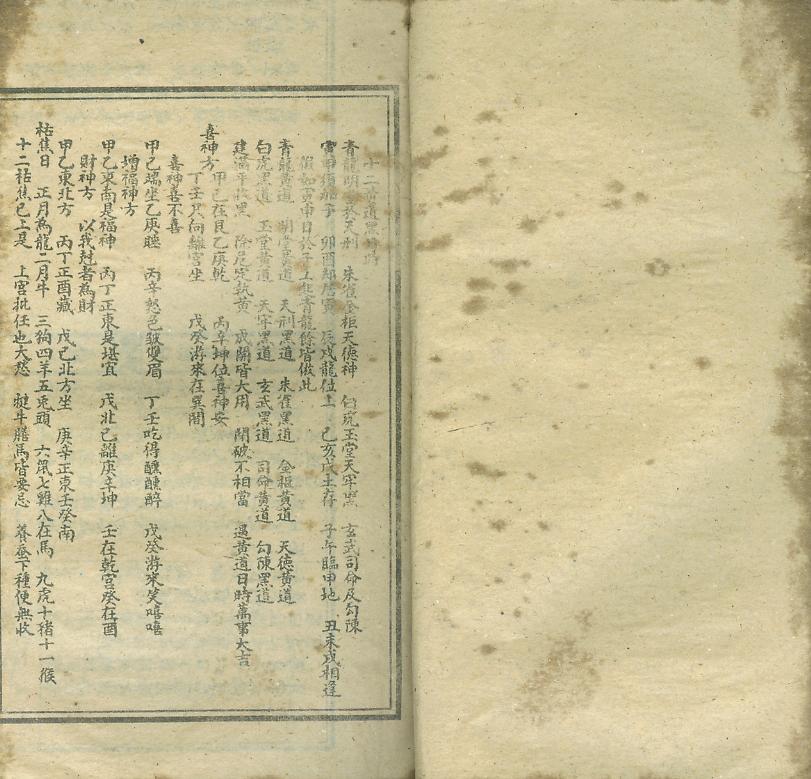 十二時道黑時
青龍明堂於天刑 朱雀金柜天德神 白虎玉堂天牢黑 玄武司命及勾陳
寅申須加子 卯酉却居寅 辰戌龍位上 巳亥戌上存 子午臨申地 丑未戌相逢
假如寅申日於子上起青龍餘皆倣此
青龍黃道 明堂黃道 天刑黑道 朱雀黑道 金柜黃道 天德黃道
白虎黑道 玉堂黃道 天牢黑道 玄武黑道 司命黃道 勾陳黑道
建滿平收黑 除危定執黃 成開皆大用 閉破不相當 遇黃道日時萬事大吉
喜神方 甲己在艮乙庚乾 丙辛坤位喜神安
丁壬只向離宮坐 戊癸游來在巽間
喜神喜不喜
甲己端坐乙庚睡 丙辛怒色皺雙眉 丁壬吃得醺醺醉 戊癸游來笑嘻嘻
增福神方
甲乙東南是福神 丙丁正東是堪宜 戊北己離庚辛坤 壬在乾宮癸在酉
財神方 以我尅者為財
甲乙東北方 丙丁正酉藏 戊己北方坐 庚辛正東壬癸南
枯焦日 正月為龍二月牛 三狗四羊五兎頭 六鼠七雞八在馬 九虎十猪十一猴
十二枯焦巳上是 上宮批任也大愁 犍牛膳馬皆要忌 養蚕下種便無收